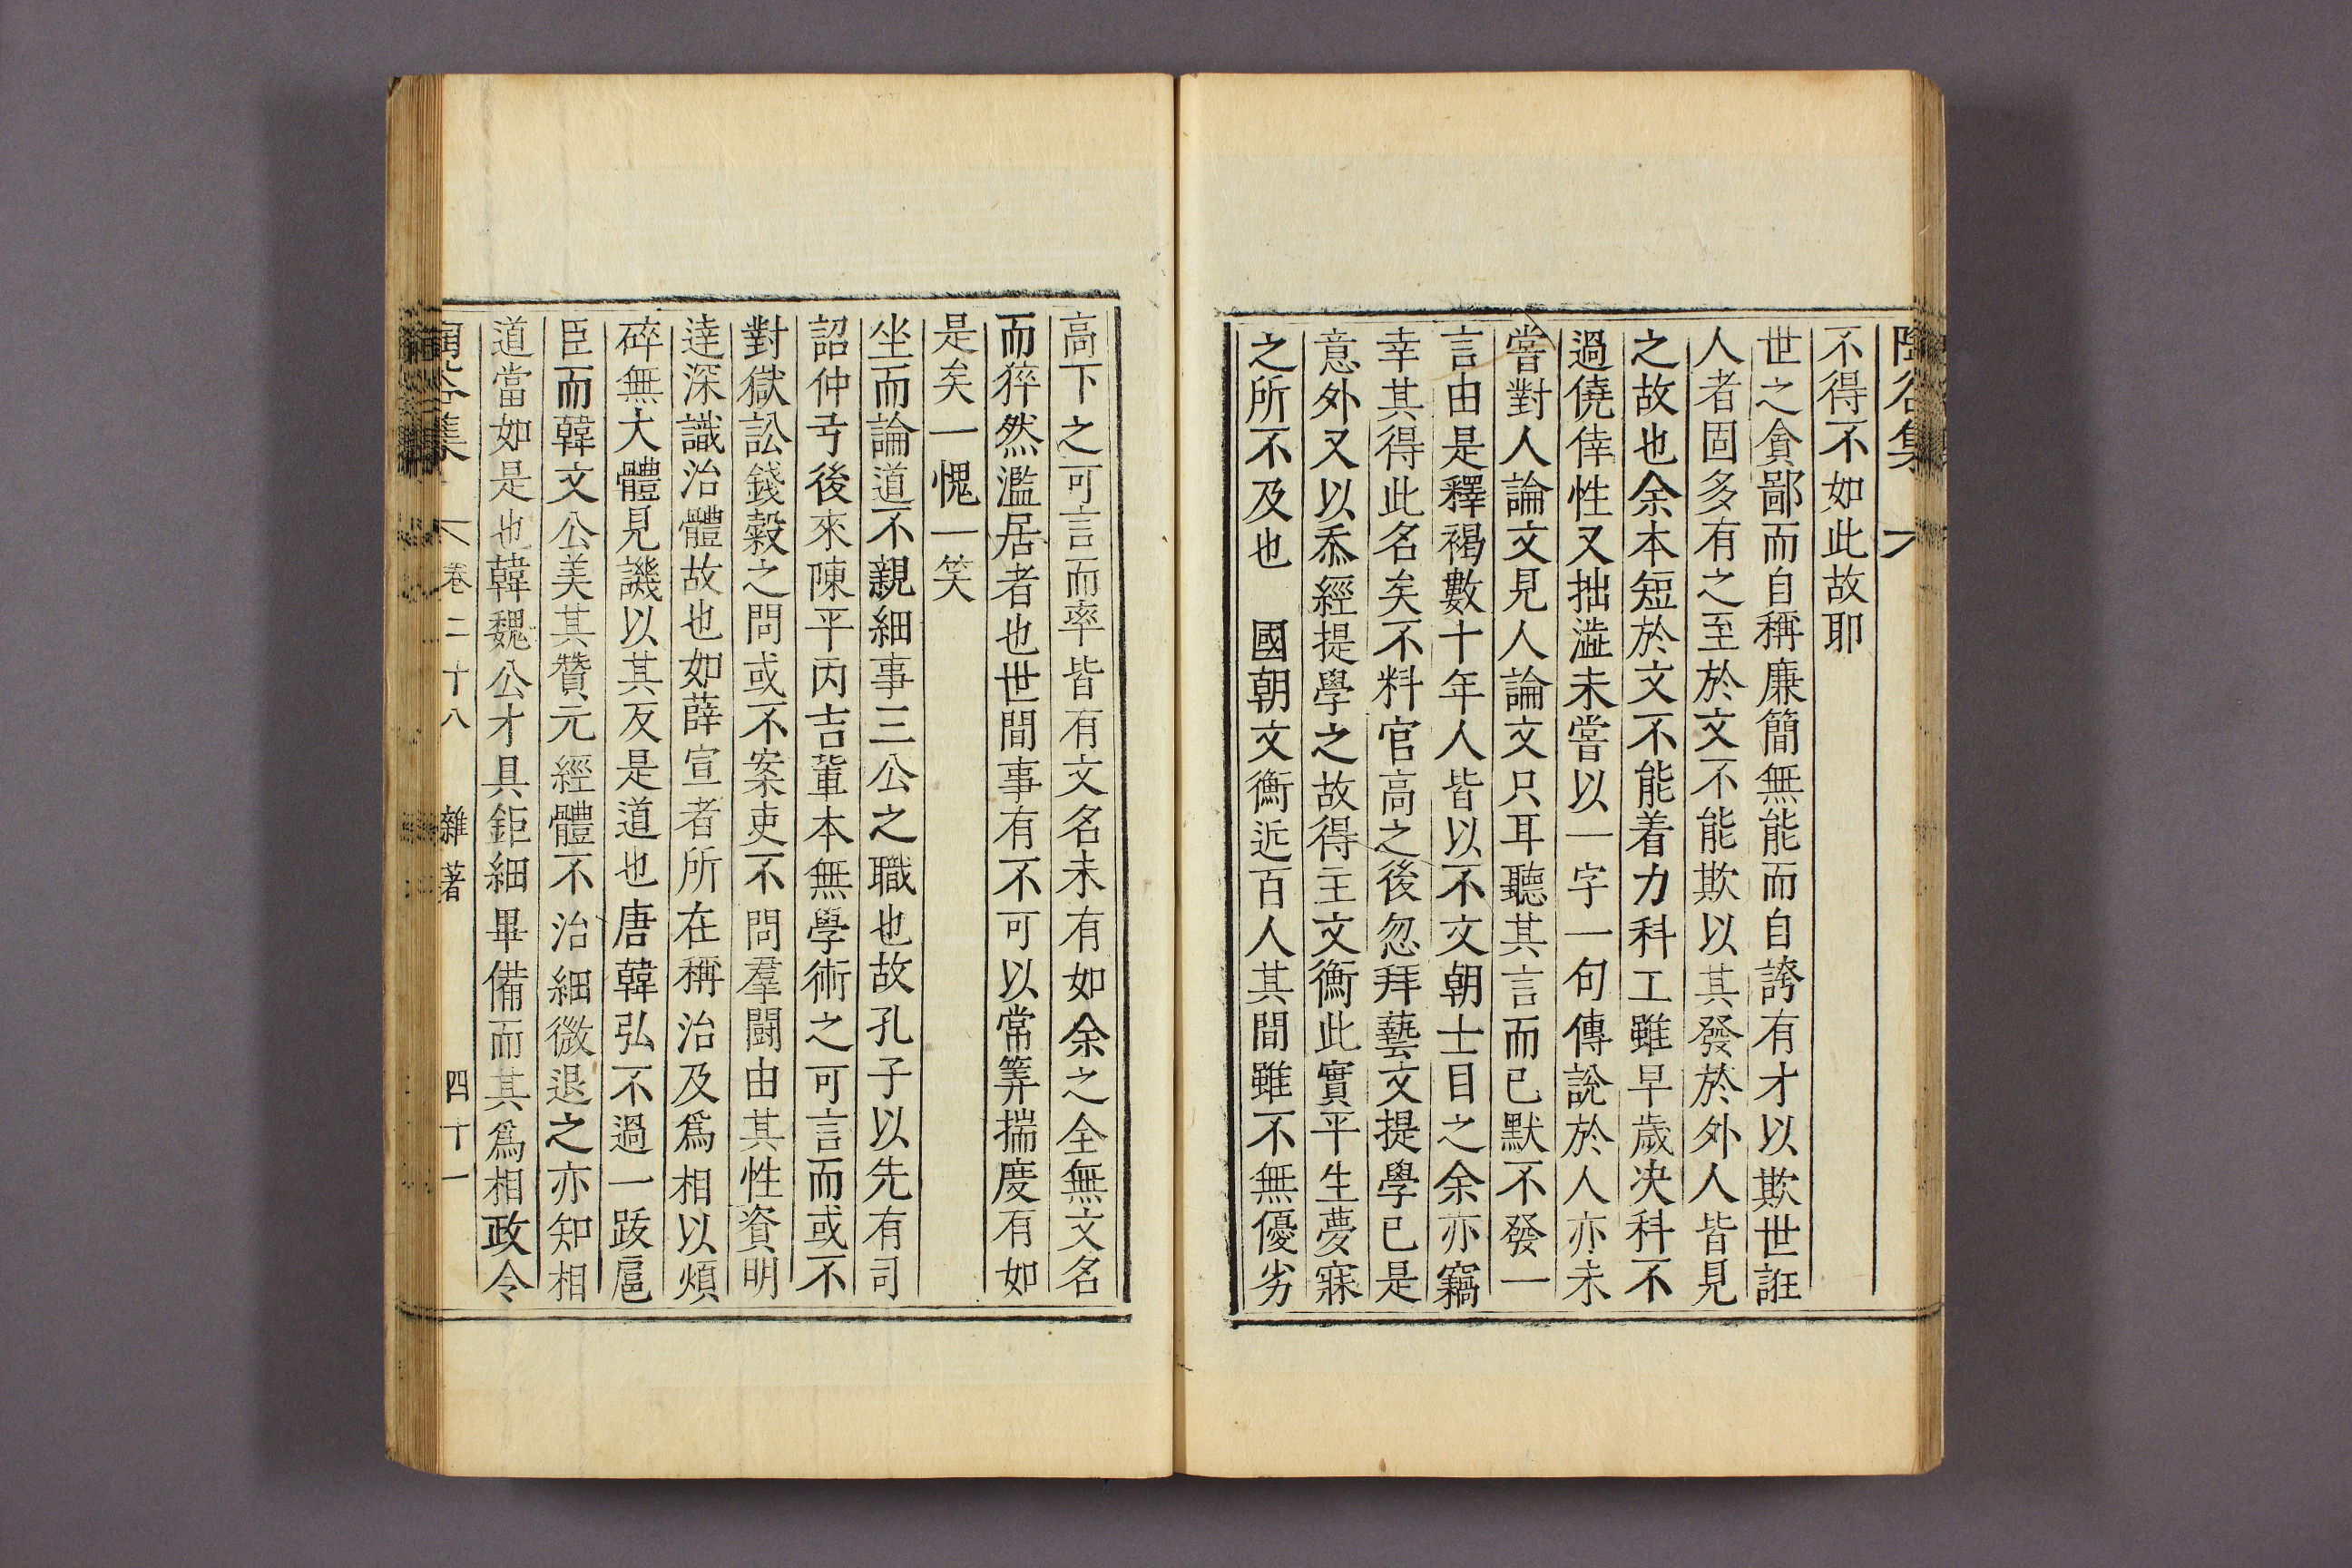 陶谷集
不得不如此故耶
世之貪鄙而自稱廉簡無能而自誇有才以欺世誑
人者固多有之至於文不能欺以其發於外人皆見
之故也余本短於文不能着力科工雖早歲决科不
過僥倖性又拙澁未嘗以一字一句傳說於人亦未
嘗對人論文見人論文只耳聽其言而已默不發一
言由是釋褐數十年人皆以不文朝士目之余亦竊
幸其得此名矣不料官高之後忽拜藝文提學已是
意外又以忝經提學之故得主文衡此實平生夢寐
之所不及也　國朝文衡近百人其間雖不無優劣
高下之可言而率皆有文名未有如余之全無文名
而猝然濫居者也世間事有不可以常筭揣度有如
是矣一愧一笑
坐而論道不親細事三公之職也故孔子以先有司
詔仲弓後來陳平丙吉輩本無學術之可言而或不
對獄訟錢穀之問或不案吏不問羣鬪由其性資明
達深識治體故也如薛宣者所在稱治及爲相以煩
碎無大體見譏以其反是道也唐韓弘不過一跋扈
臣而韓文公美其贊元經體不治細微退之亦知相
道當如是也韓魏公才具鉅細畢備而其爲相政令
陶谷集　卷二十八　雜著　四十一